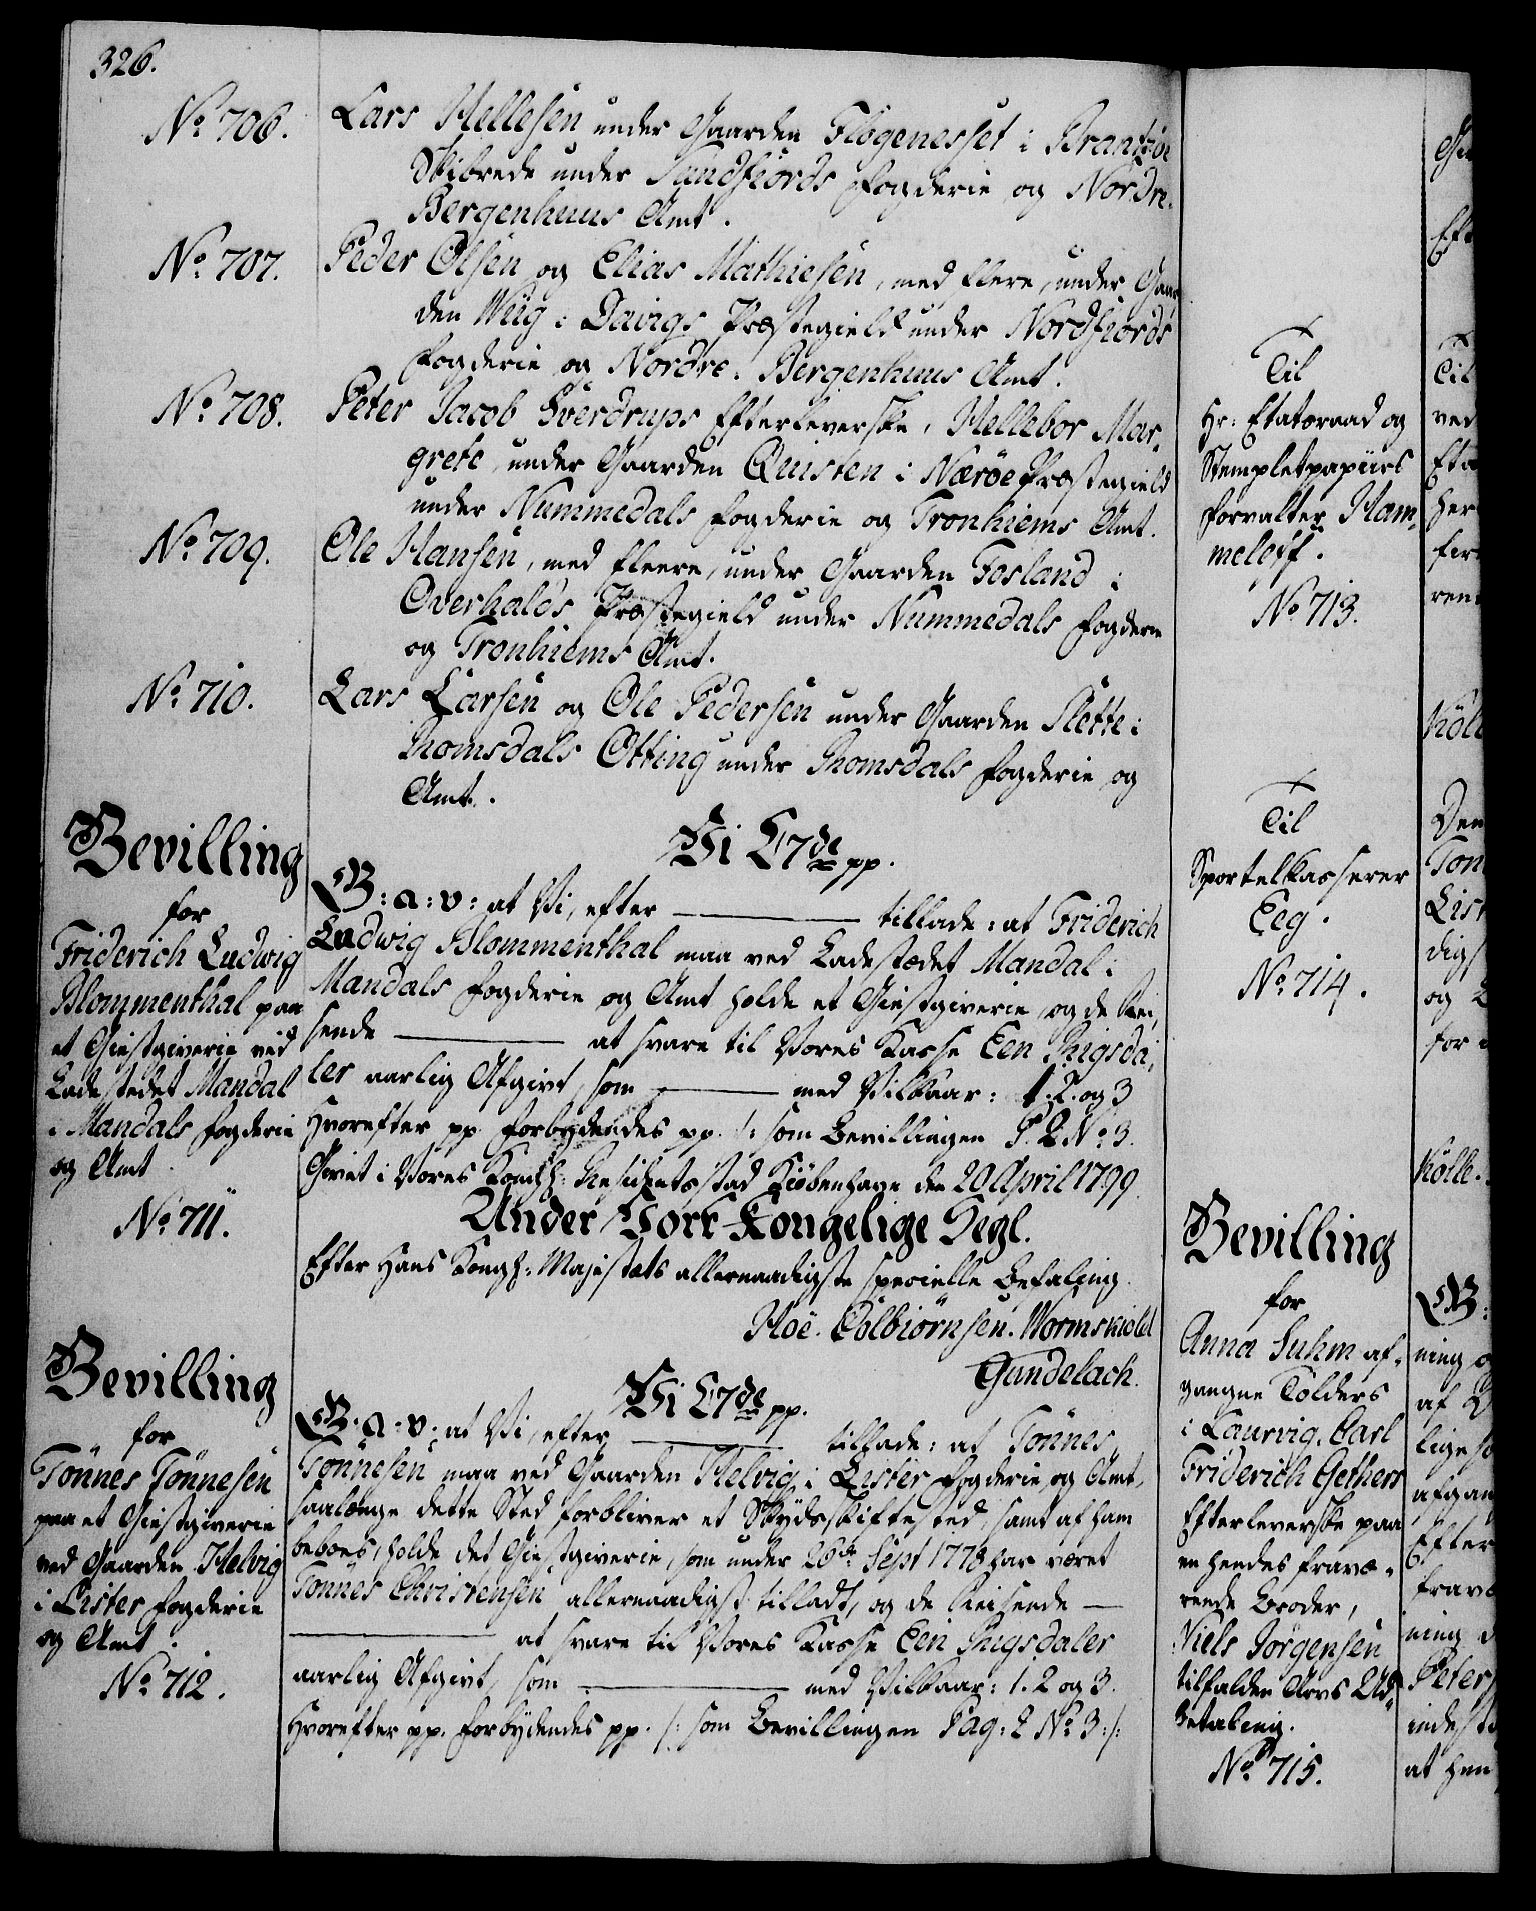 326.
No 706. Lars Hellesen under Gaarden Flögenesset i Brantzöe
Skibrede under Sundfiords Fogderie og Nordre-
Bergenhuus Amt.
No 707. Peder Olsen og Elias Mathiesen, med flere, under Gaar
den Wiig i Davigs Præstegield under Nordfiords
Fogderie og Nordre. Bergenhuus Amt.
No 708. Peter Jacob Överdrups Efterleverske, Hellebor Mar,
grete, under Gaarden Quisten i Nærøe Præstegield
under Nummedals Fogderie og Tronhiems Amt.
No 709. Ole Hansen, med fleere, under Gaarden Fosland i
Overhalds Præstegield under Nummedals Fogderie
og Tronhiems Amt.
No 710. Lars Larsen og Ole Pedersen under Gaarden Slette i
Romsdals Otting under Romsdals Fogderie og
Amt.
Bevilling
for
Friderich Ludwig
Blommenthal paa
et Giestgiverie ved
Ladestedet Mandal
i Mandals Fogderie
og Amt.
No 711.
Vi C 7de pp.
G: a: v: at Vi, efter ——— tillade: at Friderich
Ludwig Blommenthal maa ved Ladestædet Mandal i
Mandals Fogderie og Amt holde et Giestgiverie, og de Rei,
sende ——— at svare til Vores Kasse Een Rigsda,
ler aarlig Afgivt, som ——— med Vilkaar: 1. 2. og 3
Hvorefter pp. Forbydendes pp. /: som Bevillingen P. 2 No 3.
Givet i Vores Kongl: Residentsstad Kiøbenhavn den 20 April 1799.
Under Vort Kongelige Segl.
Efter Hans Kongl: Majestæts allernaadigste specielle Befaling.
Hoë. Colbiörnsen. Wormskiold
Gundelach.
Bevilling
for
Tönnes Tönnesen
paa et Giestgiverie
ved Gaarden Helvig
i Lister Fogderie
og Amt.
No 712.
Vi C 7de pp.
G. a. v. at Vi, efter ——— tillade: at Tönnes
Tönnesen maa ved Gaarden Helvig i Lister Fogderie og Amt,
saalænge dette Sted forbliver et Skydsskiftested, samt af ham
beboes, holde det Giestgiverie, som under 26de Sept 1778 har været
Tönnes Christensen allernaadigst tilladt, og de Reisende —
——— at svare til Vores Kasse Een Rigsdaler
aarlig Afgivt, som ——— med Vilkaar: 1. 2 og 3.
Hvorefter pp. Forbydendes pp. /: som Bevillingen Pag: 2 No 3:/:
Til
Hr: Etatsraad og
Stempletpapiirs
Forvalter Ham,
meleff.
No 713.
Til
Sportelkasserer
Eeg.
No 714.
Bevilling
for
Anna Suhm af-
gangne Tolders
i Laurvig, Carl
Friderich Gethers
Efterleverske paa
en hendes fravæ-
rende Broder,
Niels Jörgensen
tilfalden Arvs Ud-
betaling.
No 715.
Til
ved
Eta
her
ren
Köll
Den
Ton
List
digs
og
for
Kölle.
G:
ning
af
lige
afgan
Efter
fravæ
ning
Peter
indest
at hen